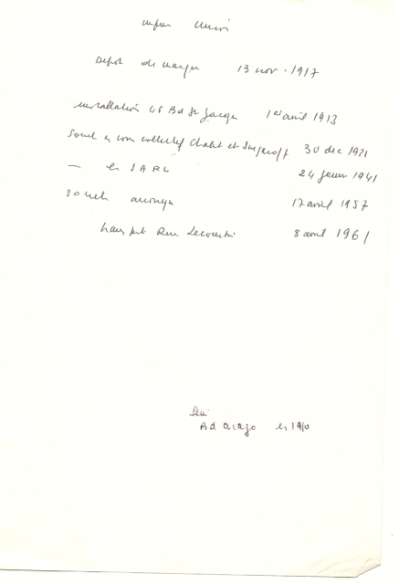 Depot de marque 13 nov. 1917
installation 46 Bd St Jacques 1er avril 1913
Société en nom collectif Chalit et 30 dec 1921
— en SARL 24 janv 1941
Société anonyme 17 avril 1957
transfert Rue Lecourbe 8 avril 1961
Bd Arago en 1910